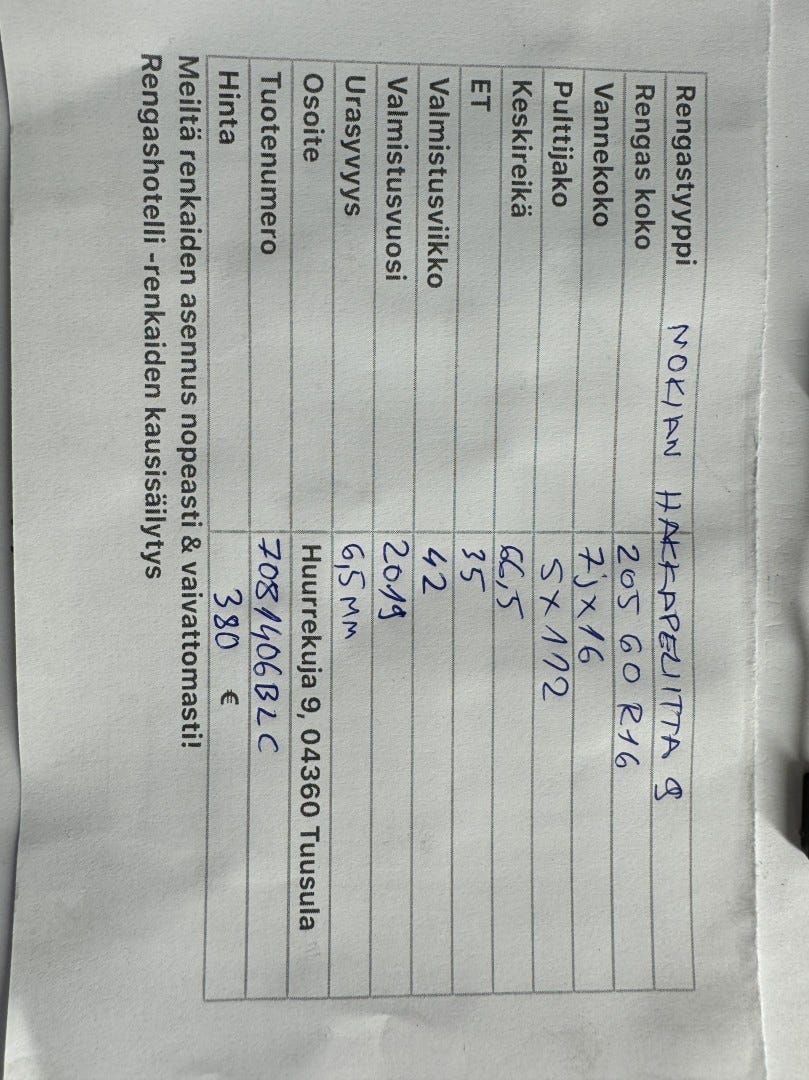 Rengastyyppi NOKIAN HAKKAPELIITTA 9
Rengas koko 205 60 R16
Vannekoko 7Jx16
Pulttijako 5x112
Keskireikä 66,5
ET 35
Valmistusviikko 42
Valmistusvuosi 2019
Urasyvyys 6,5 MM
Osoite Huurrekuja 9, 04360 Tuusula
Tuotenumero 7081406B2C
Hinta 380 €
Meiltä renkaiden asennus nopeasti & vaivattomasti!
Rengashotelli -renkaiden kausisäilytys